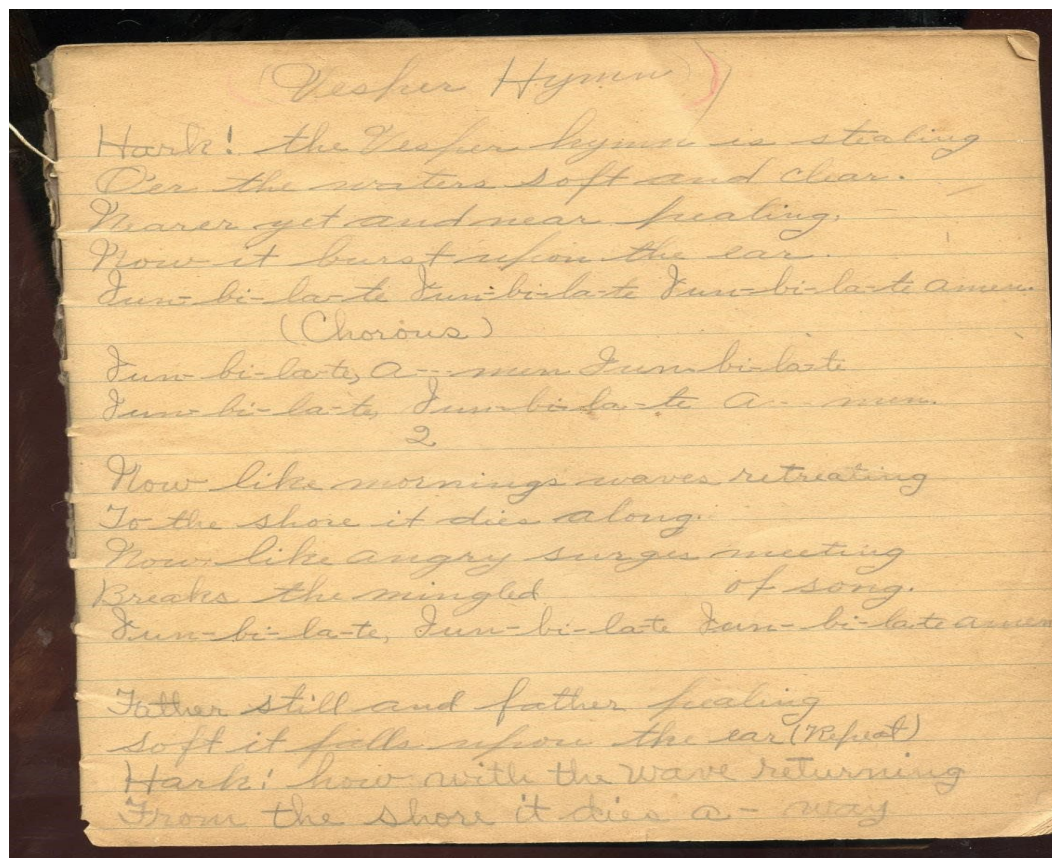 (Vesper Hymn)
Hark! the Vesper hymn is stealing
O'er the waters soft and clear.
Nearer yet and near pealing.
Now it burst upon the ear.
Jun-bi-la-te Jun-bi-la-te Jun-bi-la-te amen.
(Chorous)
Jun-bi-la-te, A---men Jun bi-la-te
Jun-bi-la-te, Jun-bi-la-te A--men.
2
Now like mornings waves retreating
To the shore it dies along.
Now like angry surges meeting
Breaks the mingled of song.
Jun-bi-la-te, Jun-bi-la-te Jun-bi-la-te amen
Father still and father pealing
soft it falls upon the ear (Repeat)
Hark! how with the wave returning
From the shore it dies a-way